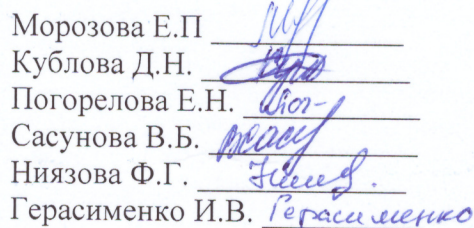 Морозова Е.П
Кублова Д.Н.
Погорелова Е.Н. Пог-
Сасунова В.Б. ВСасу
Ниязова Ф.Г.
Герасименко И.В. Герасименко